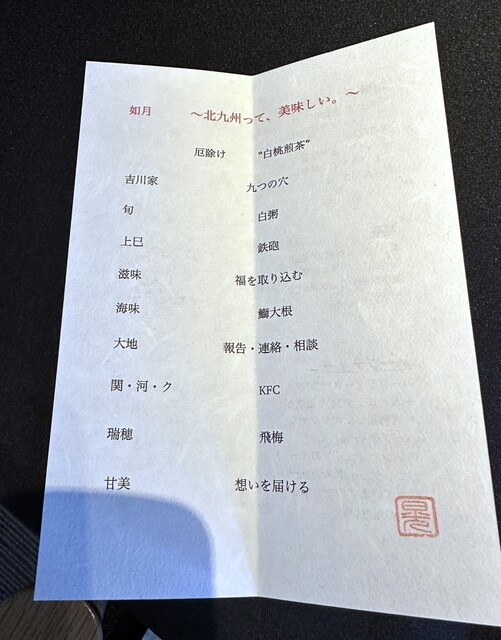 如月 ～北九州って、美味しい。～
厄除け “白桃煎茶”
吉川家 九つの穴
旬 白粥
上巳 鉄砲
滋味 福を取り込む
海味 鰤大根
大地 報告・連絡・相談
関・河・ク KFC
瑞穂 飛梅
甘美 想いを届ける